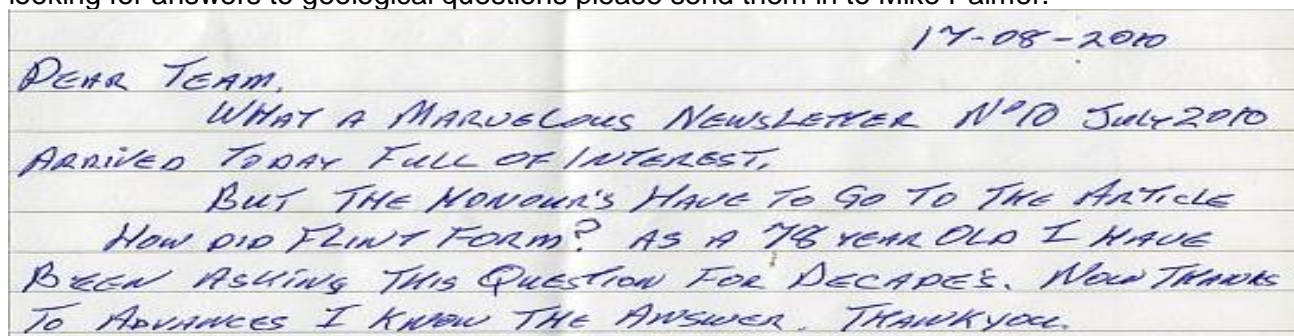 looking for answers to geological questions please send them in to Mike Palmer.
17-08-2010
DEAR TEAM,
WHAT A MARVELOUS NEWSLETTER Nº10 JULY 2010
ARRIVED TODAY FULL OF INTEREST,
BUT THE HONOUR'S HAVE TO GO TO THE ARTICLE
HOW DID FLINT FORM? AS A 78 YEAR OLD I HAVE
BEEN ASKING THIS QUESTION FOR DECADE'S. NOW THANKS
TO ADVANCES I KNOW THE ANSWER. THANKYOU.